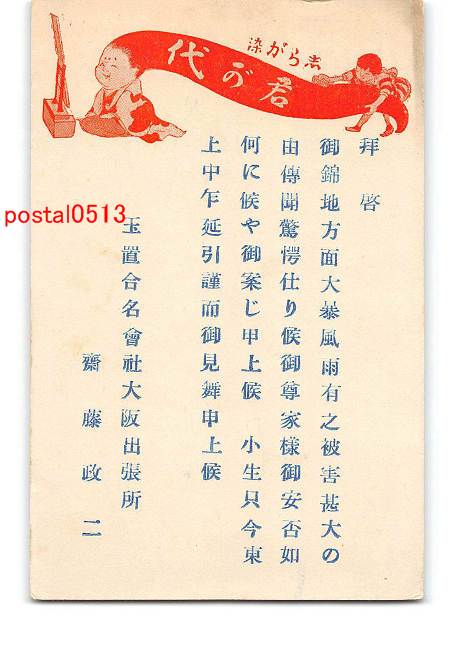 志らが染
君が代
拝啓
御錦地方面大暴風雨有之被害甚大の
由傳聞驚愕仕り候御尊家樣御安否如
何に候や御案じ申上候 小生只今東
上中乍延引謹而御見舞申上候
玉置合名會社大阪出張所
齋藤政二
postal0513